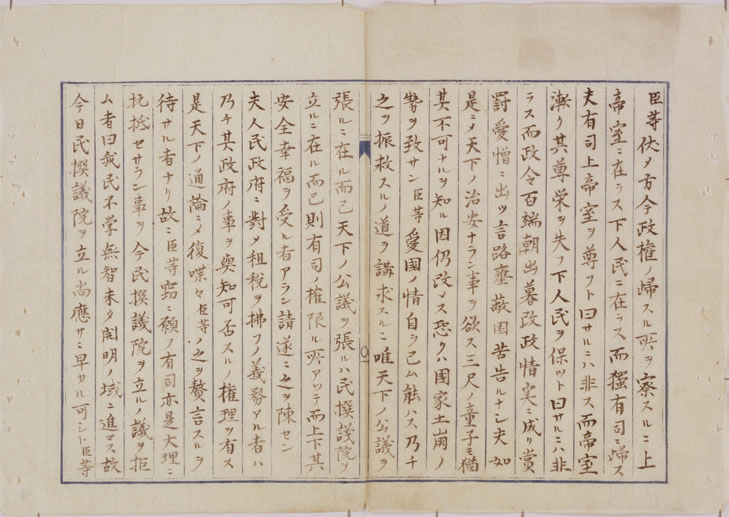 臣等伏〆方今政権ノ帰スル所ヲ察スルニ上
帝室ニ在ラス下人民ニ在ラス而獨有司ニ帰ス
夫有司上帝室ヲ尊フト曰サルニハ非ス而帝室
漸ク其尊栄ヲ失フ下人民ヲ保ツト曰サルニハ非
ラス而政令百端朝出暮改政情実ニ成リ賞
罰愛憎ニ出ツ言路壅蔽困苦告ルナシ夫如
是ニ〆天下ノ治安ナラン事ヲ欲ス三尺ノ童子モ猶
其不可ナルヲ知ル因仍改メス恐クハ國家土崩ノ
勢ヲ致サン臣等愛國ノ情自ラ已ム能ハス乃チ
之ヲ振救スルノ道ヲ講求スルニ唯天下ノ公議ヲ
張ルニ在ル而已天下ノ公議ヲ張ルハ民撰議院ヲ
立ルニ在ル而已則有司ノ權限ル所アツテ而上下其
安全幸福ヲ受ル者アラン請遂ニ之ヲ陳セン
夫人民政府ニ對〆租税ヲ拂フノ義務アル者ハ
乃チ其政府ノ事ヲ與知可否スルノ権理ヲ有ス
是天下ノ通論ニ〆復喋々臣等ノ之ヲ贅言スルヲ
待サル者ナリ故ニ臣等竊ニ願ノ有司亦是大理ニ
抗抵セサラン事ヲ今民撰議院ヲ立ルノ議ヲ拒
ム者曰我民不学無智未タ開明ノ域ニ進マス故
今日民撰議院ヲ立ル尚應サニ早カル可シト臣等